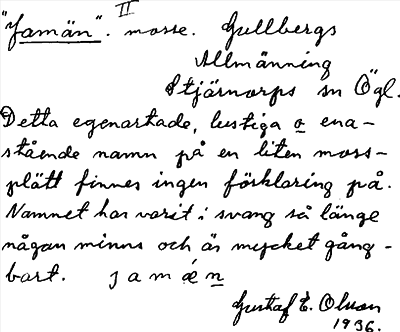 II
"Jamän". mosse. Gullbergs
Allmänning
Stjärnorps sn Ögl.
Detta egenartade, lustiga o ena-
stående namn på en liten moss-
plätt finnes ingen förklaring på.
Namnet har varit i svang så länge
någan minns och är mycket gång-
bart. j a m ä n
Gustaf E. Olsson
1936.